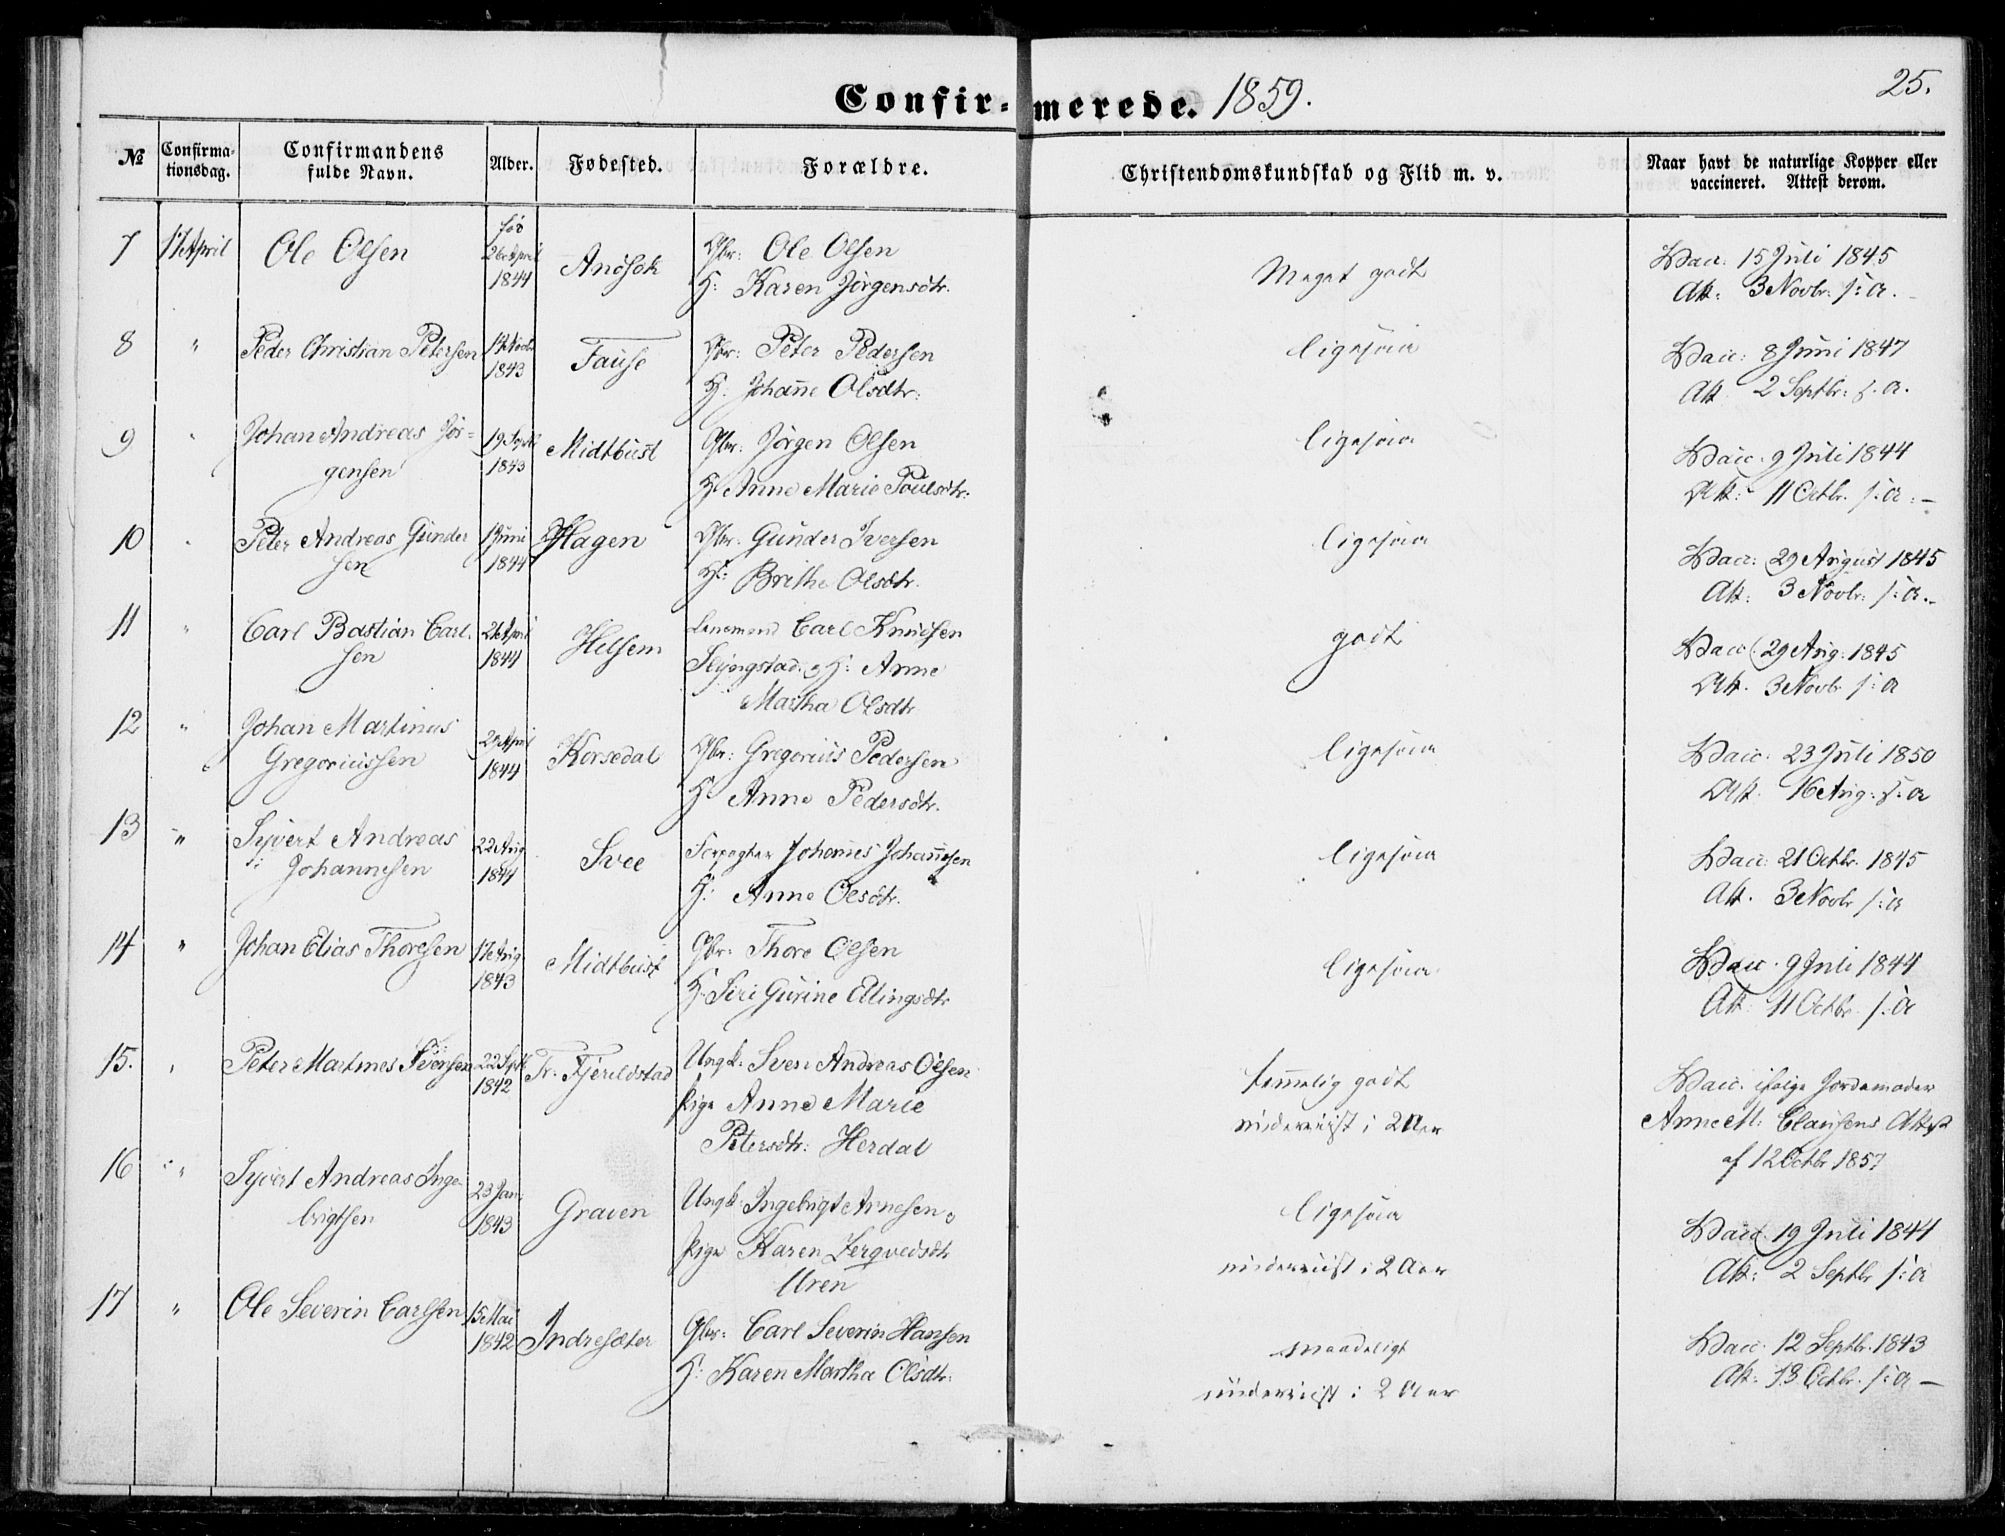 Confirmerede. 1859.
25.
№
Confirma-
tionsdag.
Confirmandens
fulde Navn.
Alder.
Fødested.
Forældre.
Christendomskundskab og Flid m. v.
Naar havt de naturlige Kopper eller
vaccineret. Attest derom.
7 17 April Ole Olsen
fød
26 April
1844
Ansøk
Gbr: Ole Olsen
H: Karen Jørgensdtr.
Meget godt
Vacc: 15 Juli 1845
Att: 3 Novbr: s: a.
8 " Peder Christian Petersen
Novbr
1843
Fause
Gbr: Peter Pedersen
H: Johanne Olsdtr:
ligesaa
Vacc: 8 Juni 1847
Att 2 Septbr: s. a.
9 " Johan Andreas Jør-
gensen
19 Septbr
1843
Midtbust
Gbr: Jørgen Olsen
H: Anne Marie Poulsdtr:
ligesaa
Vacc. 9 Juli 1844
Att: 11 Octbr. s: a: -
10 " Peter Andreas Gunder
sen
Juni
1844
Hagen
Gbr: Gunder Iversen
H: Brithe Olsdtr.
ligesaa
Vacc: 29 August 1845
Att: 3 Novbr: s: a. -
11 " Carl Bastian Carl
sen
26 April
1844
Helsem
Carl Knudsen
H: Anne
Martha Olsdtr
godt
Vacc: 29 Aug: 1845
Att. 3 Novbr s: a
12 " Johan Martinus
Gregoriussen
April
1844
Korsedal
Gbr: Gregorius Pedersen
H: Anne Pedersdtr.
ligesaa
Vacc: 23 Juli 1850
Att. 16 Aug: s: a
13 " Syvert Andreas
Johannesen
22 Aug
1844
Svee
Forpagter Johannes Johannesen
H: Anne Olsdtr.
ligesaa
Vacc: 21 Octbr. 1845
Att. 3 Novbr s: a
14 " Johan Elias Thoresen
17 Aug
1843
Midtbust
Gbr: Thore Olsen
H: Siri Gurine Ellingsdtr
ligesaa
Vacc. 9 Juli 1844
Att. 11 Octbr s: a
15. " Peter Martines Svensen
22 Septbr
1842
Tr. Fjerildstad
Ungk: Sven Andreas Olsen
Pige Anne Marie
Petersdtr: Herdal
temmelig godt
underviist i 2 Aar
Vacc. ifølge Jordemoder
Anne M: Clausens Attest
af 12 Octbr 1857
16 " Syvert Andreas Inge
brigtsen
23 Jan:
1843
Graven
Ungk: Ingebrigt Arnesen
Pige Karen
Uren
ligesaa
underviist i 2 Aar
Vacc. 19 Juli 1844
Att: 2 Septbr s: a
17 " Ole Severin Carlsen
15 Mai
1842
Indresæter
Gbr: Carl Severin Hansen
H: Karen Martha Olsdtr:
maadeligt
underviist i 2 Aar
Vacc. 12 Septbr. 1843
Att: 13 Octbr. s: a -